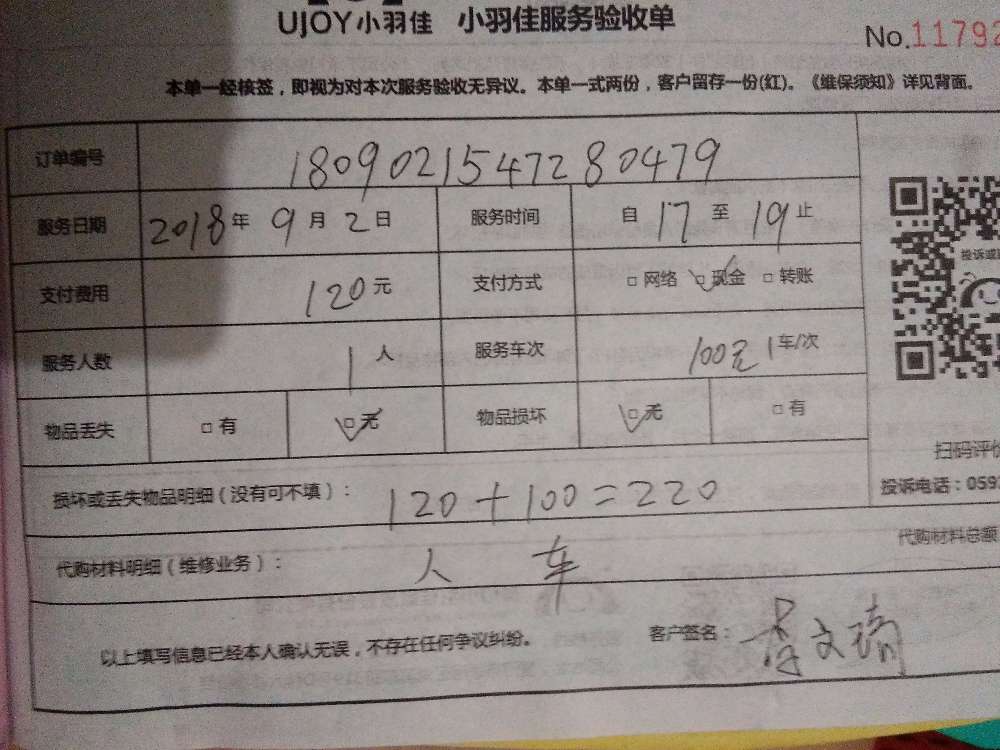 UJOY小羽佳 小羽佳服务验收单
No.11792
本单一经核签，即视为对本次服务验收无异议。本单一式两份，客户留存一份(红)。《维保须知》详见背面。
订单编号 180902154728 0479
服务日期 2018年 9月 2日 服务时间 自 17 至 19 止
投诉或
支付费用 120元 支付方式 □网络 □现金 □转账
服务人数 1人 服务车次 100元 1车/次
物品丢失 □有 □无 物品损坏 □无 □有
扫码评价
损坏或丢失物品明细（没有可不填）： 120+100=220
投诉电话：059
代购材料明细（维修业务）： 人 车
代购材料总额
以上填写信息已经本人确认无误，不存在任何争议纠纷。 客户签名： 文